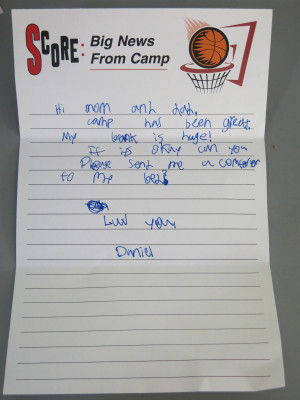 SCORE: Big News
From Camp
Hi mom anh dah,
camp has been great,
My bunk is huge!
If its okay can you
Please sent me a
to My beb?
Luv you,
Daniel